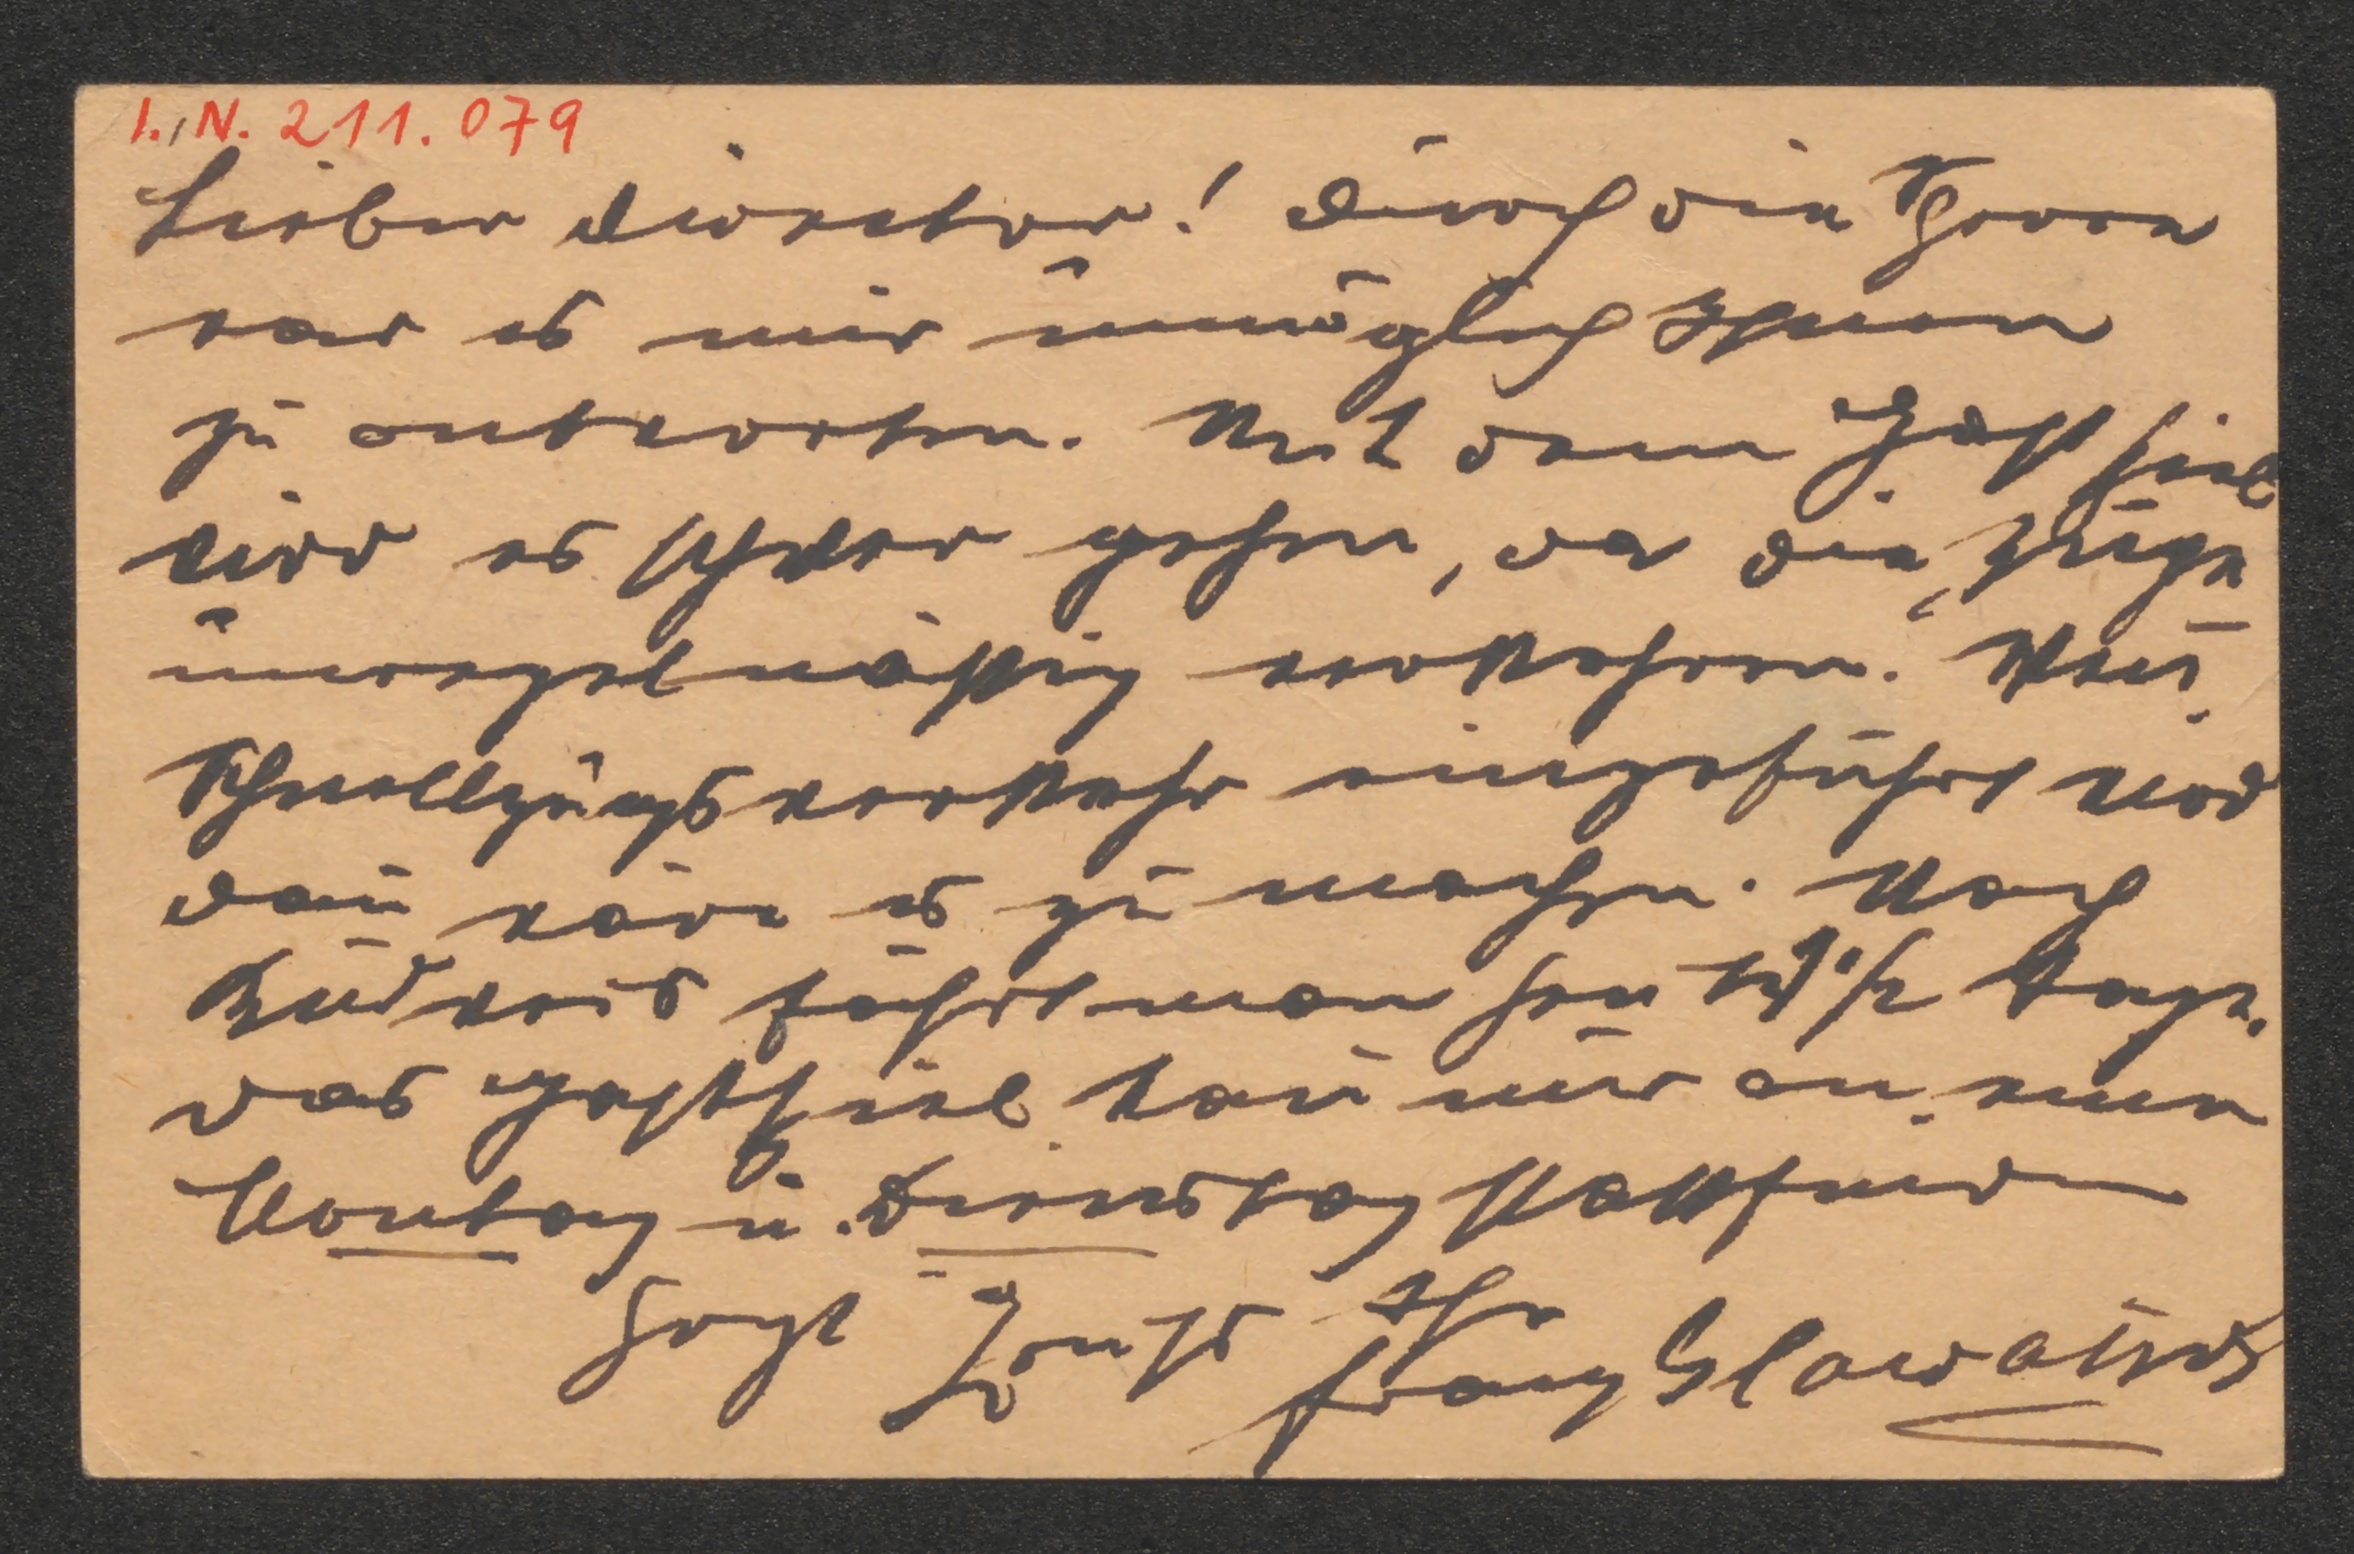 I. N. 211.079
Lieber Director! Durch die Sperre
war es mir unmöglich Ihnen
zu antworten. Mit dem Gastspiel
wird es schwer gehen, da die Züge
unregelmäßig verkehren. Wen̅
Schnellzugsverkehr eingeführt wird
dan̅ wäre es zu machen. Nach
Budweis fährt man heut 1 1/2 Tage.
Das Gastspiel kan̅ nur an einen
Montag u. Dienstag stattfinden
Ihr
Franz Glawatsch